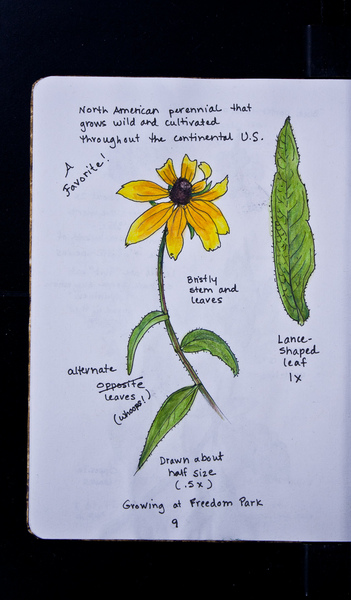 North American perennial that
grows wild and cultivated
throughout the continental U.S.
A
Favorite!
Bristly
stem and
leaves
Lance-
shaped
leaf
1x
alternate
opposite
leaves
(whoops!)
Drawn about
half size
(.5x)
Growing at Freedom Park
9